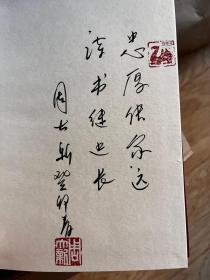 忠厚传家远
诗书继世长
周大新 癸卯春